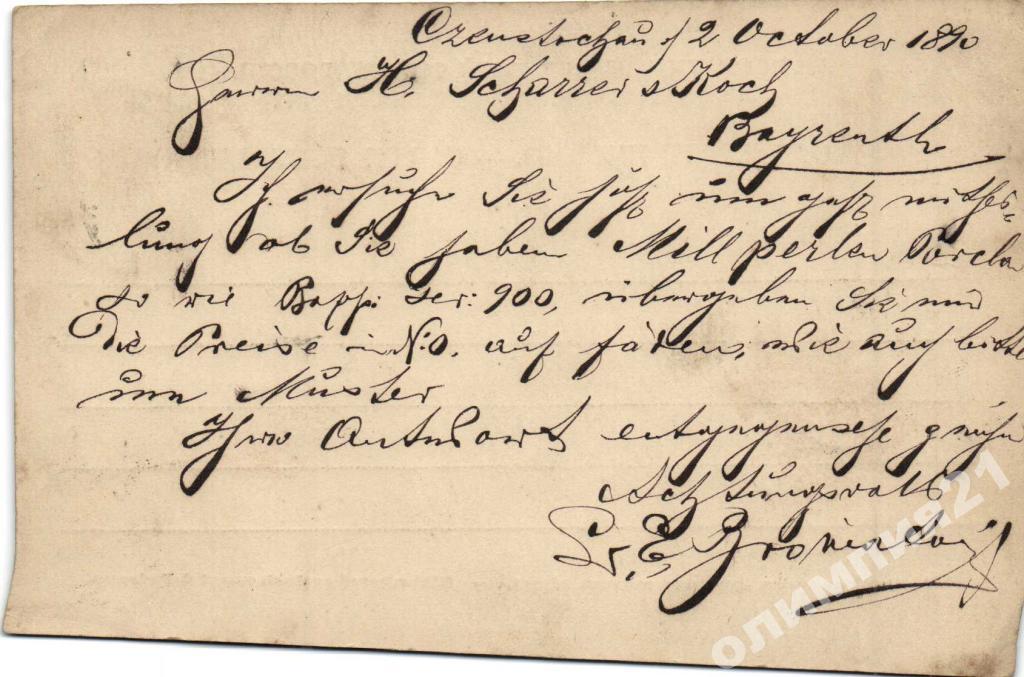 Czenstochau d/ 2 October 1890
Herren H. Scharrer & Koch
Bayreuth
Ich ersuche Sie um mithei=
lung ob Sie haben Mill perlen Porcla
so wie Bapp: ser: 900, übergeben Sie uns
die Preise in No. 0. auf fäden, wie auch bitte
um Muster
Ihre Antwort entgegensehe
Achtungsvoll
олимпия21